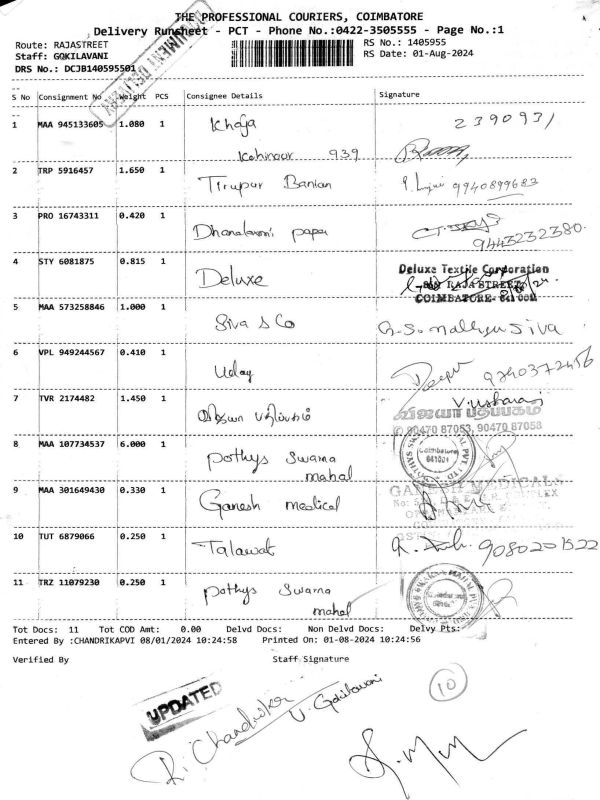 THE PROFESSIONAL COURIERS, COIMBATORE
Delivery Runsheet - PCT - Phone No.:0422-3505555 - Page No.:1
Route: RAJASTREET RS No.: 1405955
Staff: GOKILAVANI RS Date: 01-Aug-2024
DRS No.: DCJB140595501
S No Consignment No Weight PCS Consignee Details Signature
1 MAA 945133605 1.080 1 Khaja 2390931
Kohinoor 939
2 TRP 5916457 1.650 1 Tirupur Banian 9940899683
3 PRO 16743311 0.420 1 Dhanalaxmi paper 9443232380
4 STY 6081875 0.815 1 Deluxe Deluxe Textile Corporation
RAJA STREET
COIMBATORE- 641 001
5 MAA 573258846 1.000 1 Siva & Co
6 VPL 949244567 0.410 1 Uday Deepu 9740372456
7 TVR 2174482 1.450 1 விஜயா பதிப்பகம் V.usharani
விஜயா பதிப்பகம்
90470 87053, 90470 87058
8 MAA 107734537 6.000 1 Pothys Swarna mahal Coimbatore 641001
9 MAA 301649430 0.330 1 Ganesh medical GANESH MEDICALS
10 TUT 6879066 0.250 1 Talawat 9080201522
11 TRZ 11079230 0.250 1 Pothys Swarna mahal
Tot Docs: 11 Tot COD Amt: 0.00 Delvd Docs: Non Delvd Docs: Delvy Pts:
Entered By :CHANDRIKAPVI 08/01/2024 10:24:58 Printed On: 01-08-2024 10:24:56
Verified By Staff Signature
UPDATED
R. Chandrika
V. Gokilavani
10